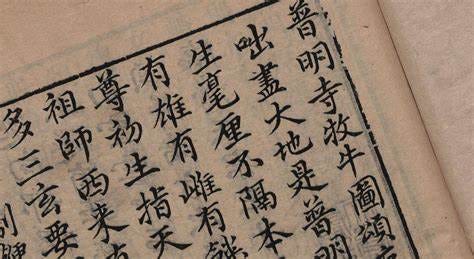 普明寺牧牛圖頌
咄盡大地是普明
生毫厘不隔本
有雄有雌有
尊初生指天
祖師西來
多三玄要